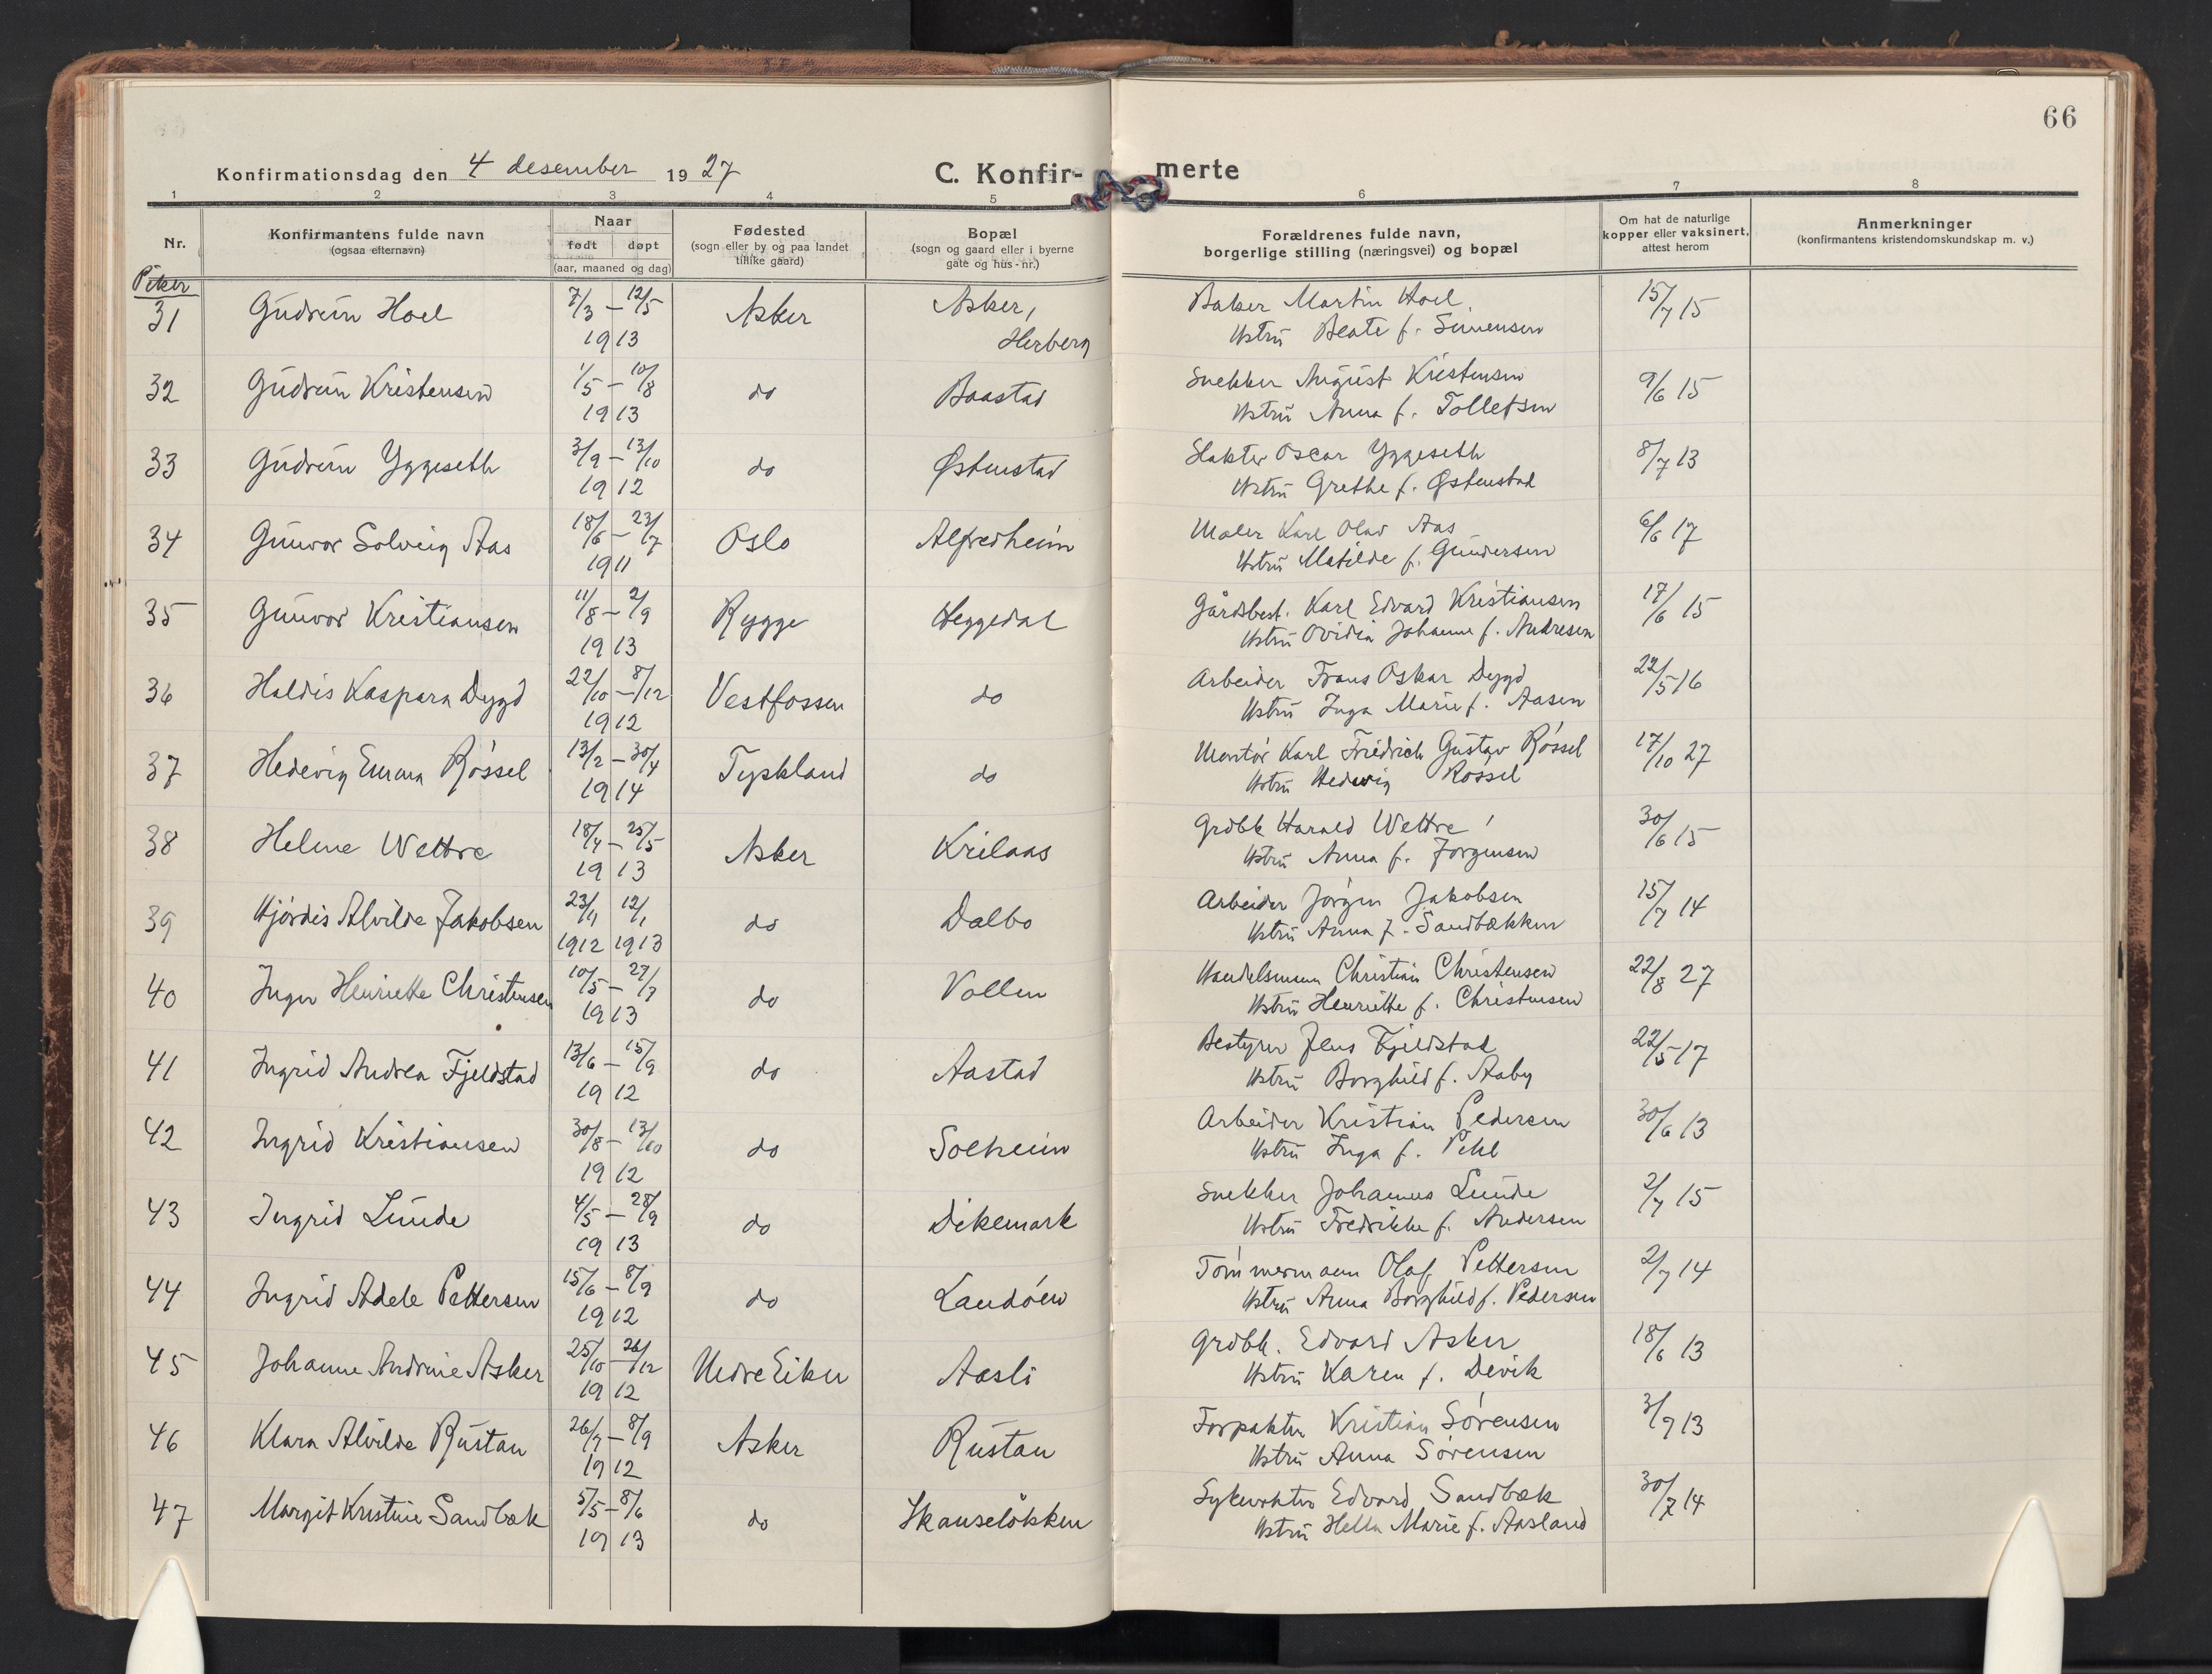 66
Konfirmationsdag den 4 desember 1927
C. Konfir- merte
1 2 3 4 5 6 7 8
Nr.
Konfirmantens fulde navn
(ogsaa efternavn)
Naar
født døpt
(aar, maaned og dag)
Fødested
(sogn eller by og paa landet
tillike gaard)
Bopæl
(sogn og gaard eller i byerne
gate og hus-nr.)
Forældrenes fulde navn,
borgerlige stilling (næringsvei) og bopæl
Om hat de naturlige
kopper eller vaksinert,
attest herom
Anmerkninger
(konfirmantens kristendomskundskap m. v.)
Piker
31 Gudrun Hoel 7/3 – 12/5 1913 Asker Asker, Herberg Baker Martin Hoel 15/7 15
Hstru Beate f. Simensen
32 Gudrun Kristensen 1/5 – 10/8 1913 do Baastad Snekker August Kristensen 9/6 15
Hstru Anna f. Tollefsen
33 Gudrun Yggeseth 3/9 – 13/10 1912 do Østenstad Slakter Oscar Yggeseth 8/7 13
Hstru Grethe f. Østenstad
34 Gunvor Solveig Aas 18/6 – 23/7 1911 Oslo Alfredheim Maler Karl Olav Aas 6/6 17
Hstru Matilde f. Gundersen
35 Gunvor Kristiansen 11/8 – 2/9 1913 Rygge Heggedal Gårdsbest. Karl Edvard Kristiansen 17/6 15
Hstru Ovidia Johanne f. Andresen
36 Haldis Kaspara Dygd 22/10 – 8/12 1912 Vestfossen do Arbeider Frans Oskar Dygd 22/5 16
Hstru Inga Marie f. Aasen
37 Hedevig Emma Rössel 13/2 – 30/4 1914 Tyskland do Montör Karl Friedrich Gustav Rössel 17/10 27
Hstru Hedwig Rossel
38 Helene Wettre 18/4 – 25/5 1913 Asker Krilaas Grdbk Harald Wettre 30/6 15
Hstru Anna f. Jorgensen
39 Hjördis Alvilde Jakobsen 23/11 12/1 1912 1913 do Dalbo Arbeider Jörgen Jakobsen 15/7 14
Hstru Anna f. Sandbækken
40 Inger Henriette Christensen 10/5 – 27/7 1913 do Vollen Handelsmann Christian Christensen 22/8 27
Hstru Henriette f. Christensen
41 Ingrid Andrea Fjeldstad 13/6 – 15/9 1912 do Aastad Bestyrer Jens Fjeldstad 22/5 17
Hstru Borghild f. Aaby
42 Ingrid Kristiansen 30/8 – 13/10 1912 do Solheim Arbeider Kristian Pedersen 30/6 13
Hstru Inga f. Pihl
43 Ingrid Lunde 4/5 – 28/9 1913 do Dikemark Snekker Johannes Lunde 2/7 15
Hstru Fredrikke f. Andersen
44 Ingrid Adele Pettersen 15/6 – 8/9 1912 do Landöen Tömmermann Olaf Pettersen 2/7 14
Hstru Anna Borghild f. Pedersen
45 Johanne Andrine Asker 25/10 – 26/12 1912 Nedre Eiker Aasli Grdbk. Edvard Asker 18/6 13
Hstru Karen f. Devik
46 Klara Alvilde Rustan 26/7 – 8/9 1912 Asker Rustan Forpakter Kristian Sörensen 3/9 13
Hstru Anna Sörensen
47 Margit Kristine Sandbæk 5/5 – 8/6 1913 do Skauselökken Sykevokter Edvard Sandbæk 30/7 14
Hstru Hella Marie f. Aasland